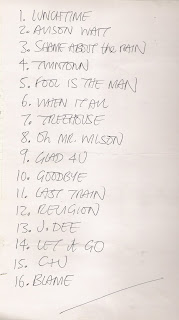 1. LUNCHTIME
2. AVISON WATT
3. SHAME ABOUT THE RAIN
4. TWINTOWN
5. FOOL IS THE MAN
6. WHEN IT ALL
7. TREEHOUSE
8. OH MR. WILSON
9. GLAD 4U
10. GOODBYE
11. LAST TRAIN
12. RELIGION
13. J. DEE
14. LET IT GO
15. C+U
16. BLAME